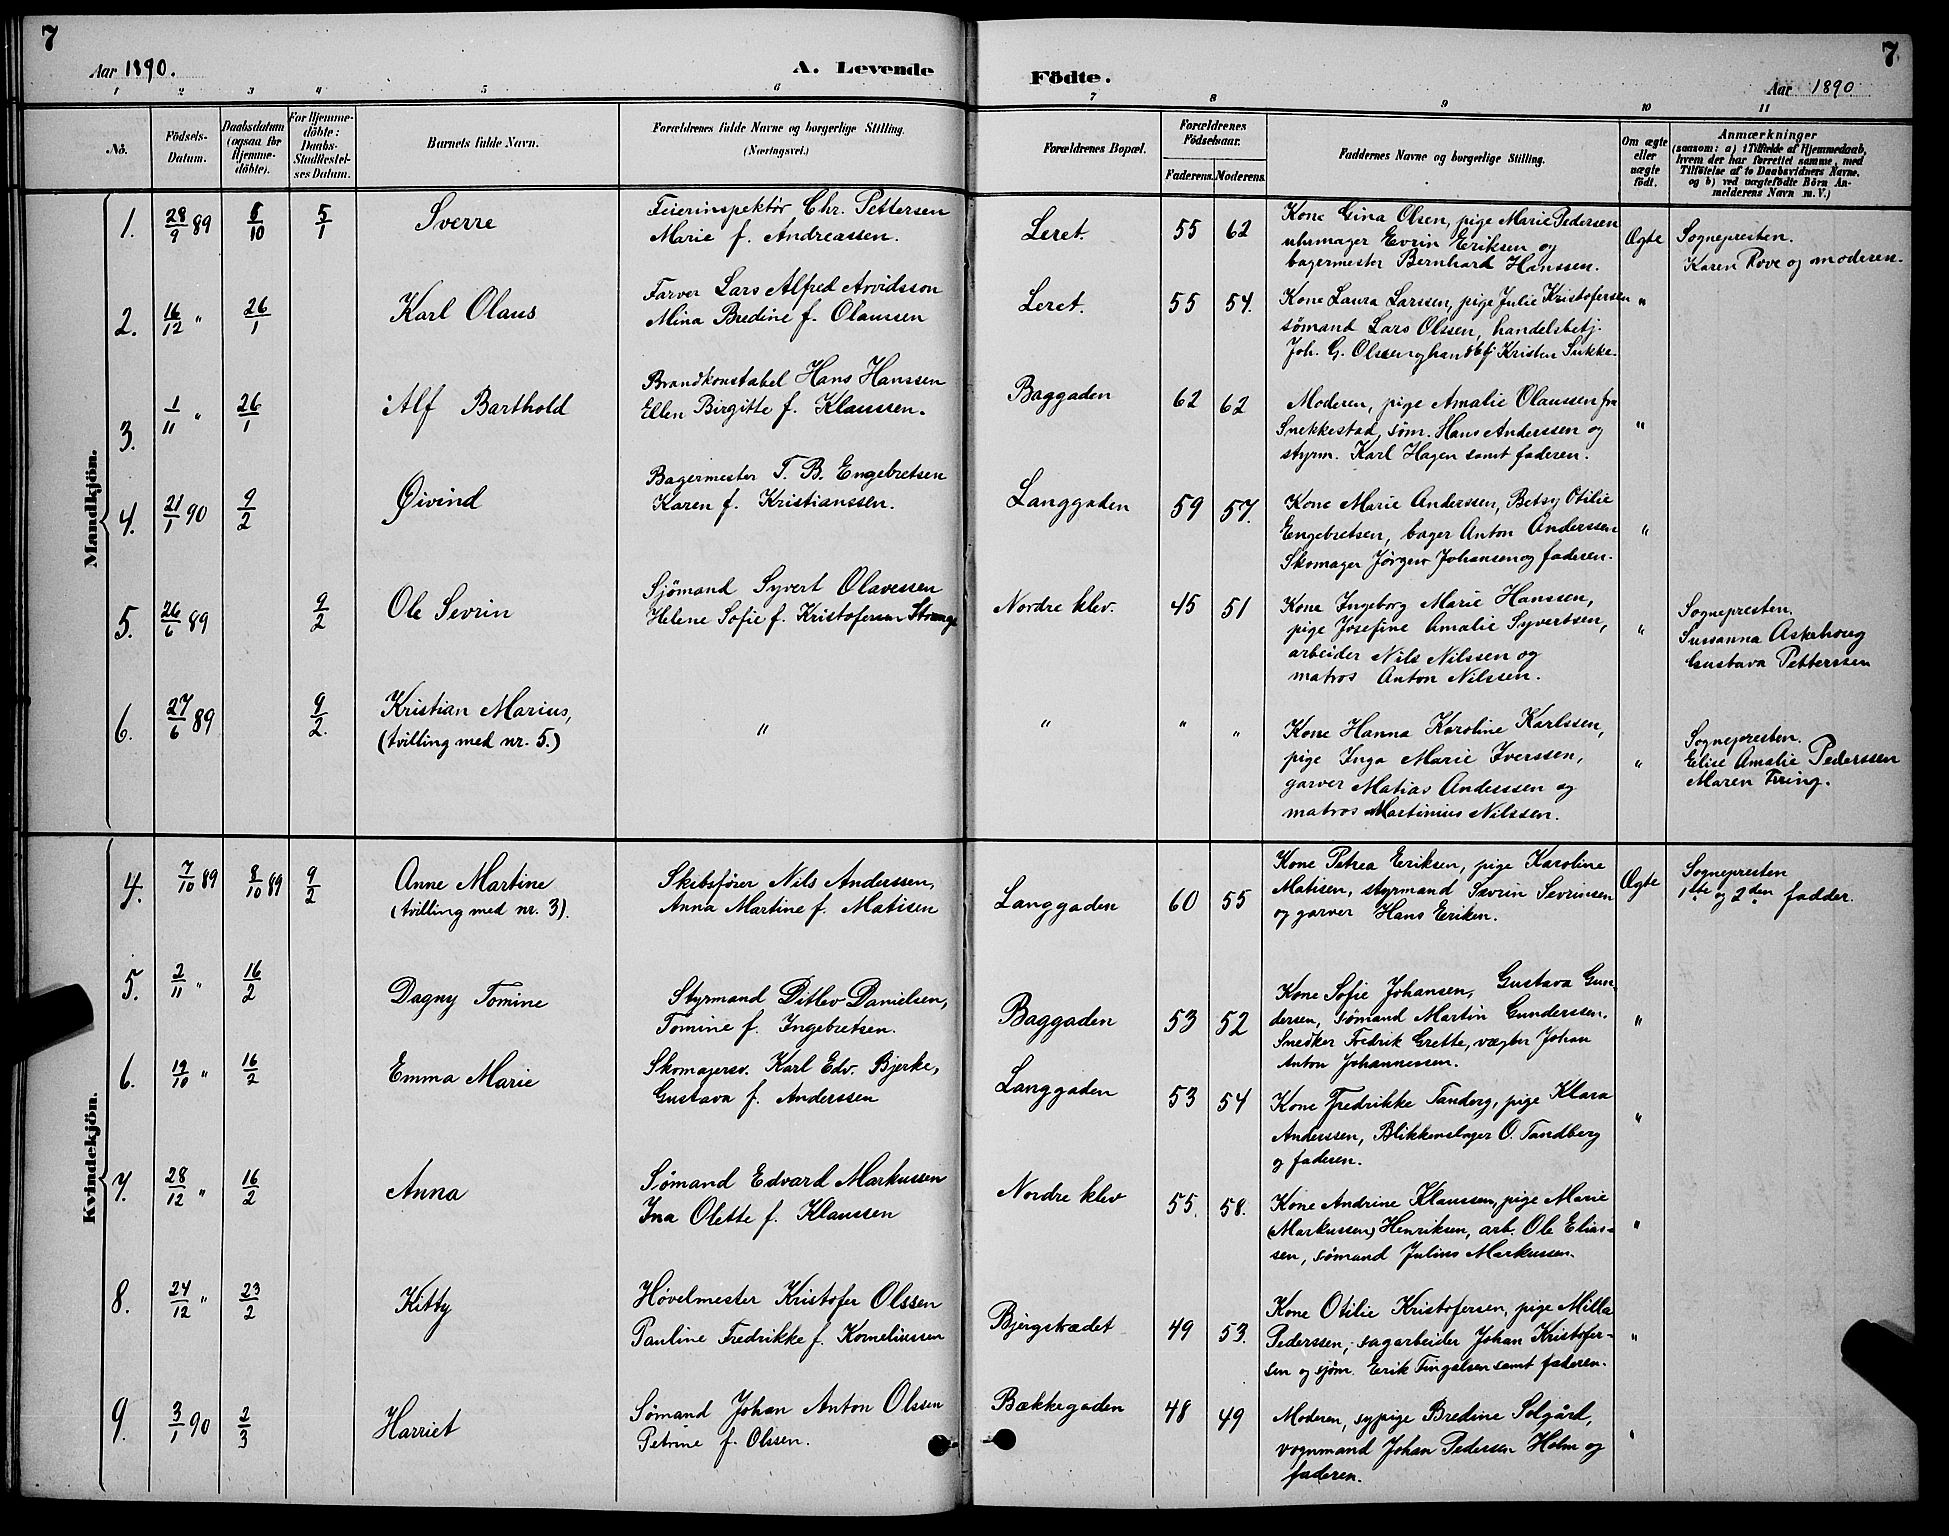 7
Aar 1890.
A. Levende
Födte.
7.
Aar 1890
1 2 3 4 5 6 7 8 9 10 11
No.
Födsels-
Datum.
Daabsdatum
(ogsaa for
Hjemme-
döbte).
For Hjemme-
döbte:
Daabs-
Stadfestel-
ses Datum.
Barnets fulde Navn.
Forældrenes fulde Navne og borgerlige Stilling.
(Næringsvei.)
Forældrenes Bopæl.
Forældrenes
Födselsaar.
Faderens. Moderens.
Faddernes Navne og borgerlige Stilling.
Om ægte
eller
uægte
födt.
Anmærkninger
(saasom: a) i Tilfælde af Hjemmedaab,
hvem der har forrettet samme, med
Tilföielse af to Daabsvidners Navne,
og b) ved uægtefödte Börn An-
melderens Navn m. V.)
Mandkjön.
1. 28/9 89 6/10 5/1 Sverre
Feierinspektör Chr. Pettersen
Marie f. Andreassen.
Leret. 55 62
Kone Gina Olsen, pige Marie Pedersen
uhrmager Evrin Eriksen og
bagermester Bernhard Hanssen.
Ægte
Sognepresten.
Karen Rove og moderen.
2. 16/12 " 26/1 Karl Olaus
Farver Lars Alfred Arvidsson
Mina Bredine f. Olaussen
Leret. 55 54.
Kone Laura Larssen, pige Julie Kristofersen
sømand Lars Olssen, handelsbetj.
Joh. G. Olssen og handbtj Kristen Sukke.
"
3. 1/11 " 26/1 Alf Barthold
Brandkonstabel Hans Hanssen
Ellen Birgitte f. Klaussen.
Baggaden 62 62
Moderen, pige Amalie Olaussen fra
Snekkestad, søm. Hans Anderssen og
styrm. Karl Hagen samt faderen.
"
4. 21/1 90 9/2 Øivind
Bagermester T. B. Engebretsen
Karen f. Kristianssen.
Langgaden 59 57.
Kone Marie Anderssen, Betsy Otilie
Engebretsen, bager Anton Anderssen
Skomager Jørgen Johansen og faderen.
"
5. 26/6 89 9/2 Ole Sevrin
Sjømand Syvert Olavessen
Helene Sofie f. Kristofersen Strange
Nordre klev. 45 51
Kone Ingeborg Marie Hanssen,
pige Josefine Amalie Syvertsen,
arbeider Nils Nilssen og
matros Anton Nilssen.
"
Sognepresten.
Susanna Askehoug
Gustava Petterssen
6. 27/6 89 9/2. Kristian Marius,
(tvilling med nr. 5.)
" " " "
Kone Hanna Karoline Karlssen,
pige Inga Marie Iverssen,
garver Matias Anderssen og
matros Martinius Nilssen.
"
Sognepresten.
Elise Amalie Pederssen
Maren Firing.
Kvindekjön.
4. 7/10 89 8/10 89 9/2 Anne Martine
(tvilling med nr. 3).
Skibsfører Nils Anderssen,
Anna Martine f. Matisen
Langgaden 60 55
Kone Petrea Eriksen, pige Karoline
Matisen, styrmand Sevrin Sevrinsen
og garver Hans Eriken.
Ægte
Sognepresten
1ste og 2den fadder.
5. 2/11 " 16/2 Dagny Tomine
Styrmand Ditlev Danielsen,
Tomine f. Ingebretsen.
Baggaden 53 52
Kone Sofie Johansen, Gustava Gun-
dersen, sømand Martin Gunderssen.
Snedker Fredrik Grette, vægter Johan
Anton Johannessen.
"
6. 19/10 " 16/2 Emma Marie
Skomagersv. Karl Edv. Bjerke,
Gustava f. Anderssen
Langgaden 53 54
Kone Fredrikke Tanderg, pige Klara
Anderssen, Blikkenslager O. Tandberg
og faderen.
"
7. 28/12 " 16/2 Anna
Sømand Edvard Markussen
Ina Olette f. Klaussen
Nordre klev 55. 58.
Kone Andrine Klaussen, pige Marie
(Markussen) Henriksen, arb. Ole Elias-
sen, sømand Julius Markussen.
"
8. 24/12 " 23/2 Kitty
Høvelmester Kristofer Olssen
Pauline Fredrikke f. Korneliussen
Bjergstrædet 49 53.
Kone Otilie Kristofersen, pige Milla
Pederssen, sagarbeider Johan Kristofer-
sen og sjøm. Erik Tingelsen samt faderen.
"
9. 3/1 90 2/3 Harriet
Sømand Johan Anton Olssen
Petrine f. Olssen.
Bækkegaden 48 49
Moderen, sypige Bredine Solgård,
vognmand Johan Pedersen Holm og
faderen.
"